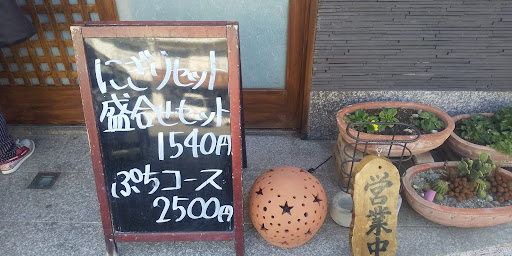 にぎりセット
盛合せセット
1540円
ぷちコース
2500円
営業中